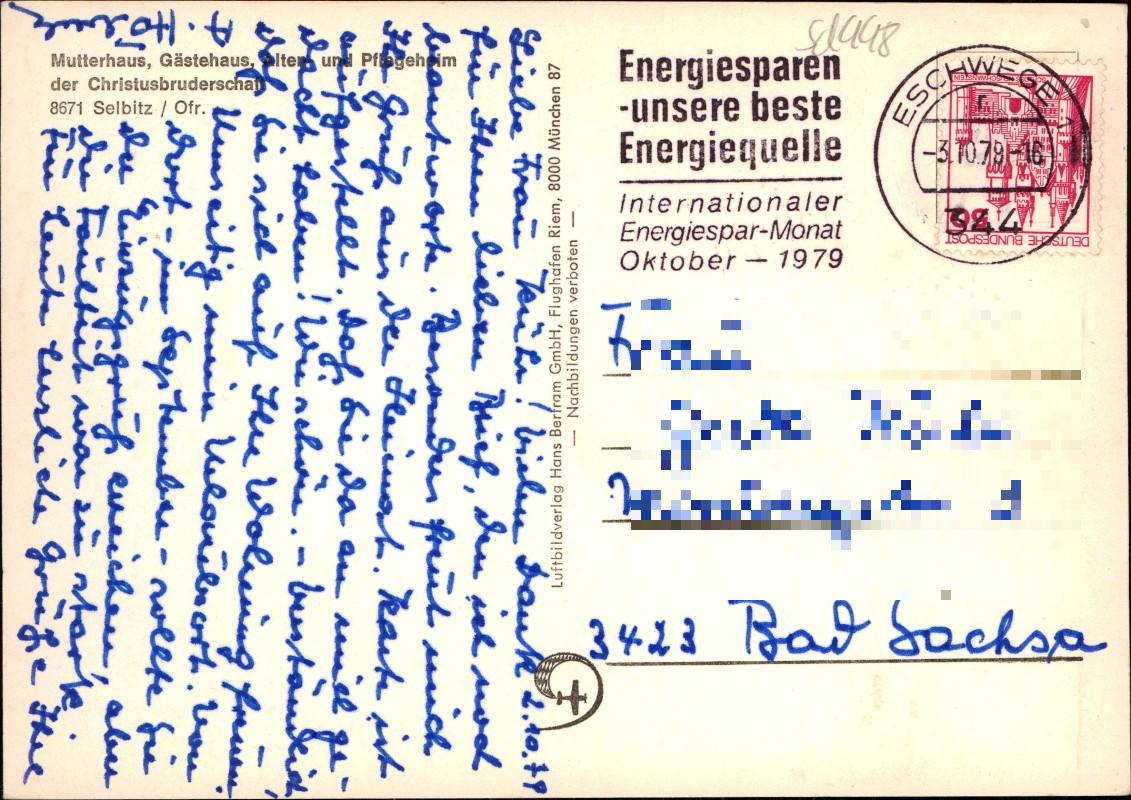 Mutterhaus, Gästehaus, Alten- und Pflegeheim
der Christusbruderschaft
8671 Selbitz / Ofr.
Liebe Frau Kühn! Vielen Dank 2.10.79
für Ihren lieben Brief, den ich noch
beantworte. Besonders freut mich
Ihr Gruß aus der Heimat. Karte ist
aufgestellt. Daß Sie da an mich ge-
dacht haben! Wie schön. - Verständlich
daß Sie sich auf Ihre Wohnung freuen.
Umseitig mein Urlaubsort. Von
dort - im September - sollte Sie
ein Gruß erreichen, aber
die Faulheit war zu stark.
Für heute herzliche Grüße Ihre
A.
Luftbildverlag Hans Bertram GmbH, Flughafen Riem, 8000 München 87
— Nachbildungen verboten —
Energiesparen
-unsere beste
Energiequelle
Internationaler
Energiespar-Monat
Oktober – 1979
ESCHWEGE 1
-3.10.79-16
344
DEUTSCHE BUNDESPOST
3423 Bad Sachsa